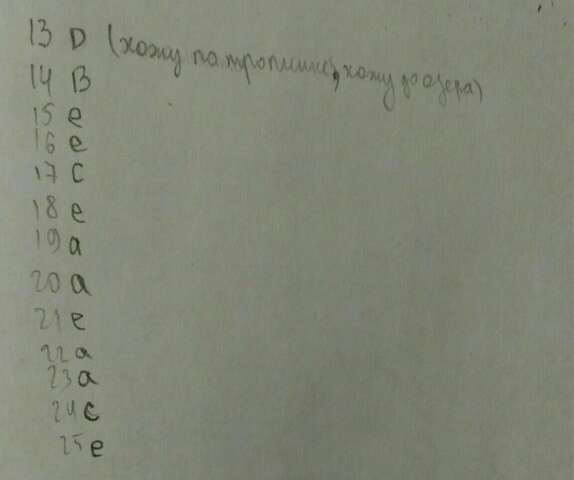 13 D (хожу по тропинке, хожу до озера)
14 B
15 e
16 e
17 c
18 e
19 a
20 a
21 e
22 a
23 a
24 c
25 e